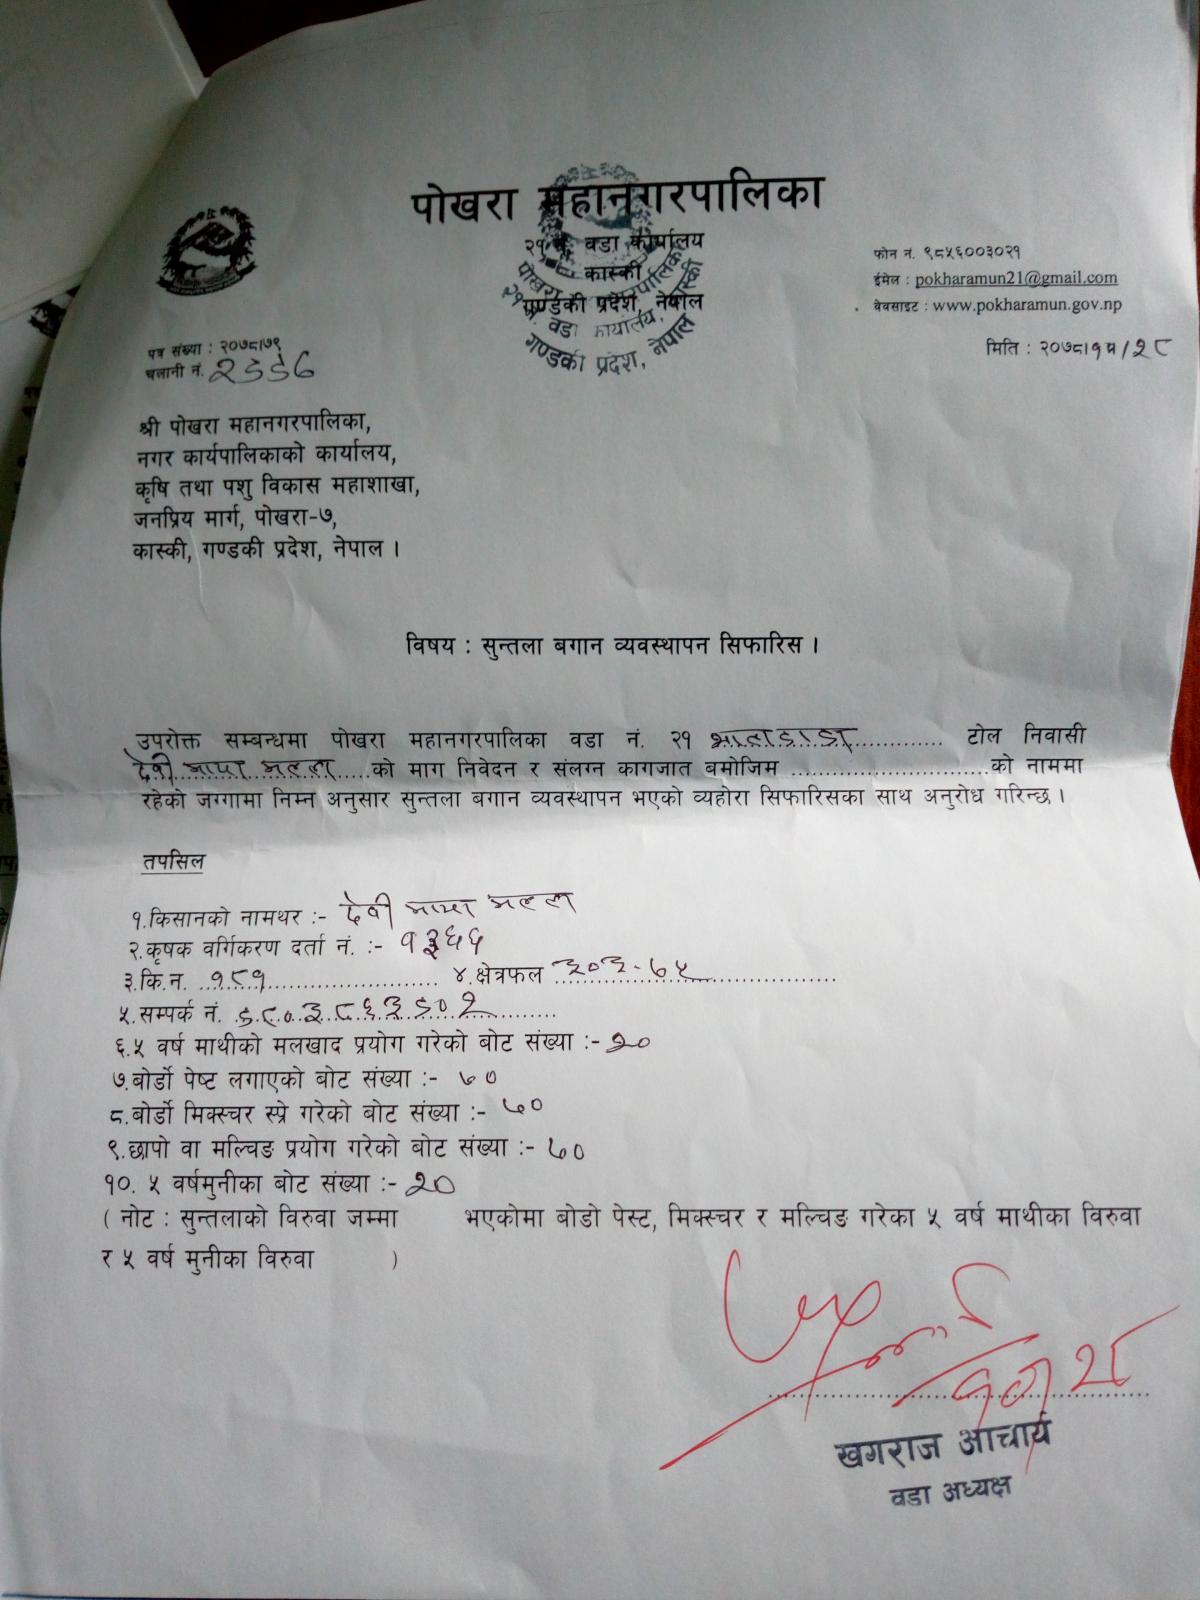 पोखरा महानगरपालिका
२१ नं. वडा कार्यालय
कास्की
गण्डकी प्रदेश, नेपाल
पोखरा महानगरपालिका
२१ नं. वडा कार्यालय, कास्की
गण्डकी प्रदेश, नेपाल
फोन नं. ९८५६००३०२१
ईमेल : pokharamun21@gmail.com
वेवसाइट : www.pokharamun.gov.np
पत्र संख्या : २०७८।७९
चलानी नं.
मिति : २०७८।११/२८
श्री पोखरा महानगरपालिका,
नगर कार्यपालिकाको कार्यालय,
कृषि तथा पशु विकास महाशाखा,
जनप्रिय मार्ग, पोखरा-७,
कास्की, गण्डकी प्रदेश, नेपाल ।
विषय : सुन्तला बगान व्यवस्थापन सिफारिस ।
उपरोक्त सम्बन्धमा पोखरा महानगरपालिका वडा नं. २१ .............. टोल निवासी
देवी माया मल्ल.....को माग निवेदन र संलग्न कागजात बमोजिम ..............................को नाममा
रहेको जग्गामा निम्न अनुसार सुन्तला बगान व्यवस्थापन भएको व्यहोरा सिफारिसका साथ अनुरोध गरिन्छ ।
तपसिल
१.किसानको नामथर :- देवी माया मल्ल
२.कृषक वर्गिकरण दर्ता नं. :- १३६६
३.कि.न. १९१ ......................... ४.क्षेत्रफल ३०३.७५ ...................
५.सम्पर्क नं.
६.५ वर्ष माथीको मलखाद प्रयोग गरेको बोट संख्या :-
७.बोर्डो पेष्ट लगाएको बोट संख्या :- ७०
८.बोर्डो मिक्स्चर स्प्रे गरेको बोट संख्या :- ७०
९.छापो वा मल्चिङ प्रयोग गरेको बोट संख्या :- ७०
१०. ५ वर्षमुनीका बोट संख्या :- २०
( नोट : सुन्तलाको विरुवा जम्मा भएकोमा बोडो पेस्ट, मिक्स्चर र मल्चिङ गरेका ५ वर्ष माथीका विरुवा
र ५ वर्ष मुनीका विरुवा )
खगराज आचार्य
वडा अध्यक्ष